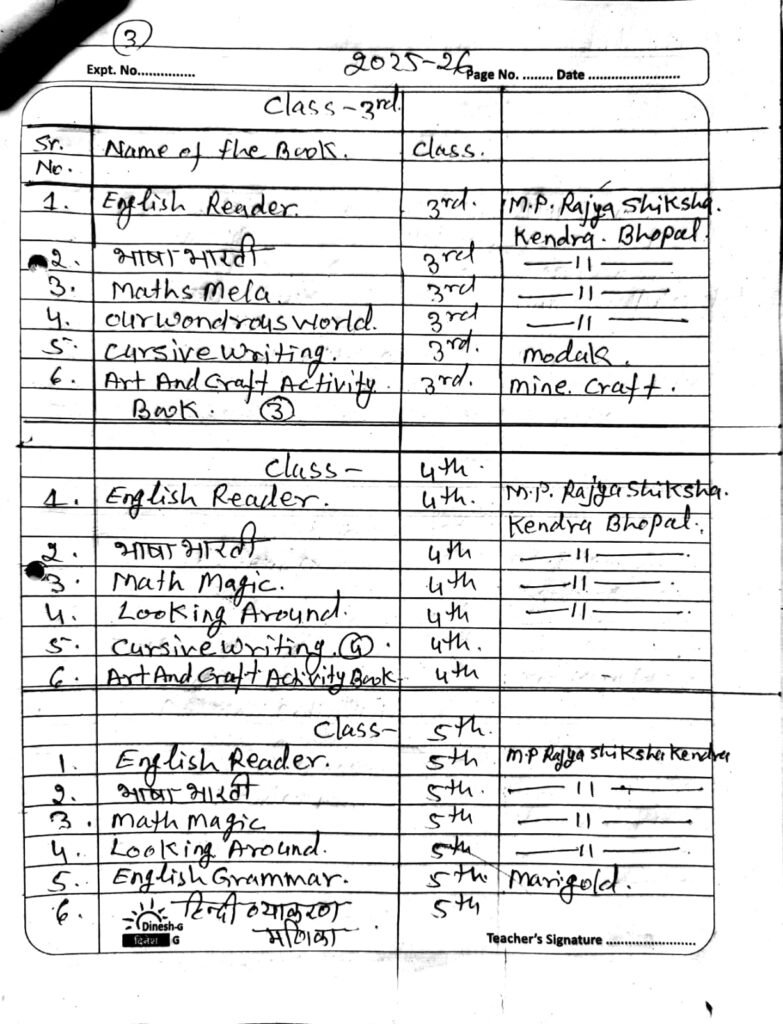 3
2025-26
Expt. No............... Page No. ........ Date ........................
Class - 3rd.
Sr. No. Name of the Book. Class.
1. English Reader. 3rd. M.P. Rajya Shiksha.
Kendra. Bhopal.
2. भाषा भारती 3rd —11—
3. Maths Mela. 3rd —11—
4. our wondrous world. 3rd —11—
5. cursive writing. 3rd. modak.
6. Art And Craft Activity 3rd. mine. craft.
Book. 3
Class - 4th.
1. English Reader. 4th. M.P. Rajya Shiksha.
Kendra Bhopal.
2. भाषा भारती 4th —11—
3. Math Magic. 4th —11—
4. Looking Around. 4th —11—
5. cursive writing. 4. 4th.
6. Art And Craft Activity Book 4th
Class- 5th.
1. English Reader. 5th M.P Rajya Shiksha Kendra
2. भाषा भारती 5th. —11—
3. Math magic 5th —11—
4. Looking Around. 5th —11—
5. English Grammar. 5th. Marigold.
6. हिन्दी व्याकरण 5th
मणिका
Dinesh-G
दिनेश G
Teacher's Signature ........................